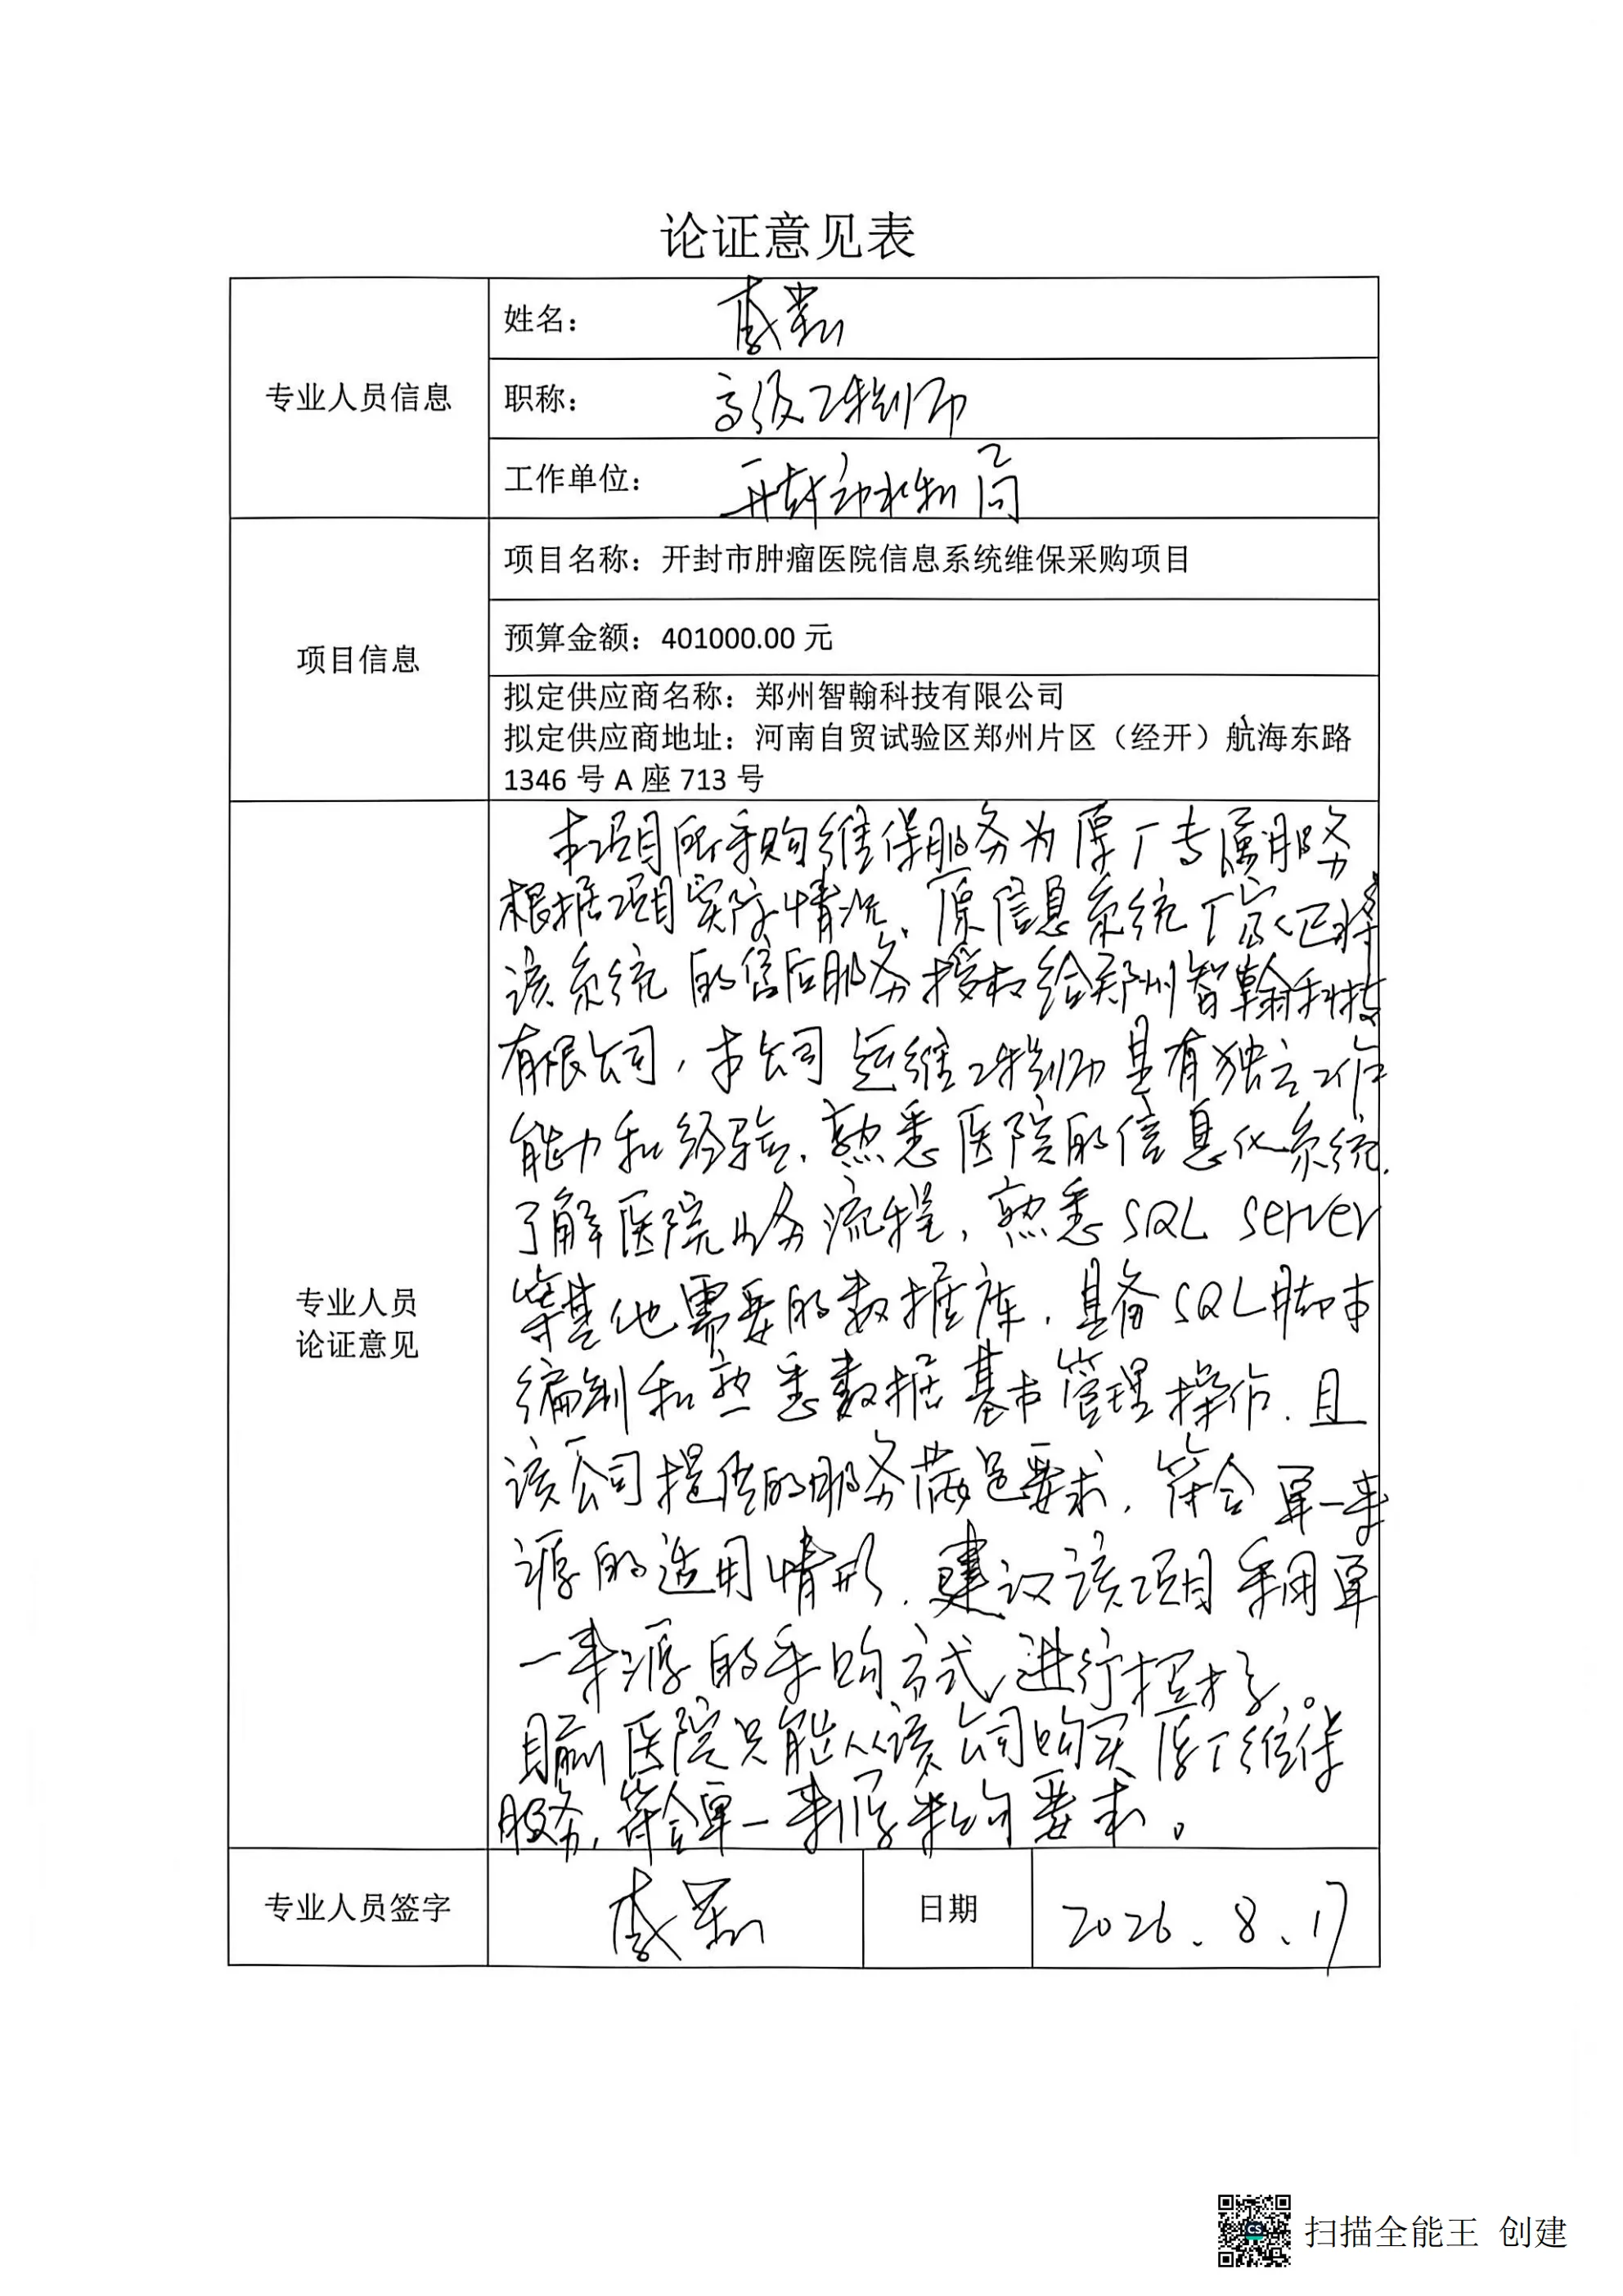 论证意见表
专业人员信息
姓名：
职称： 高级工程师
工作单位： 开封市水利局
项目信息
项目名称：开封市肿瘤医院信息系统维保采购项目
预算金额：401000.00 元
拟定供应商名称：郑州智翰科技有限公司
拟定供应商地址：河南自贸试验区郑州片区（经开）航海东路
1346 号 A 座 713 号
专业人员
论证意见
本项目所采购维保服务为原厂专属服务
根据项目实际情况，原信息系统厂家已将
该系统的售后服务授权给郑州智翰科技
有限公司，本公司运维工程师具有独立工作
能力和经验，熟悉医院的信息化系统，
了解医院业务流程，熟悉SQL Server
等其他需要的数据库，具备SQL脚本
编制和熟悉数据基本管理操作，且
该公司提供的服务满足要求，符合单一来
源的适用情形，建议该项目采用单
一来源的采购方式进行
目前医院只能从该公司购买原厂维保
服务，符合单一来源采购要求。
专业人员签字
日期
2026.8.17
扫描全能王 创建